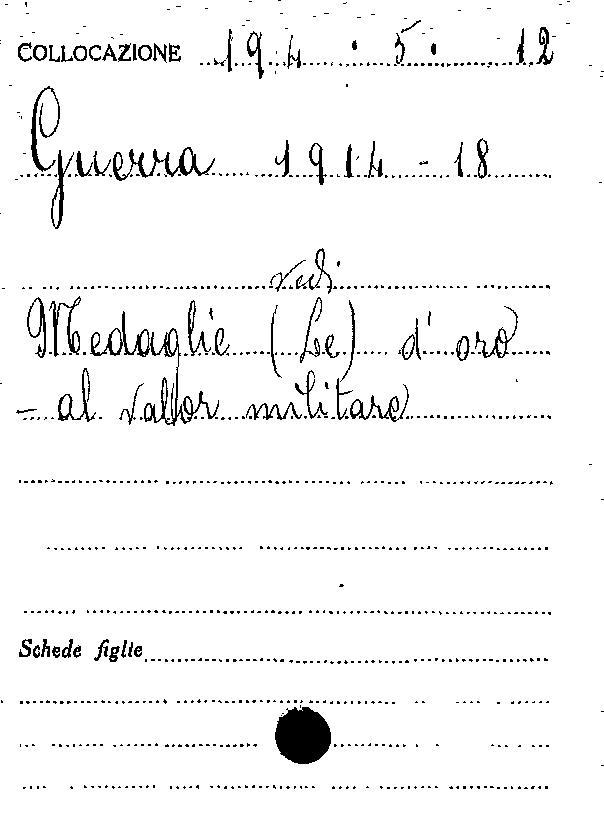 COLLOCAZIONE 194.5.12
Guerra 1914-18
vedi
Medaglie (Le) d'oro
- al valor militare
Schede figlie